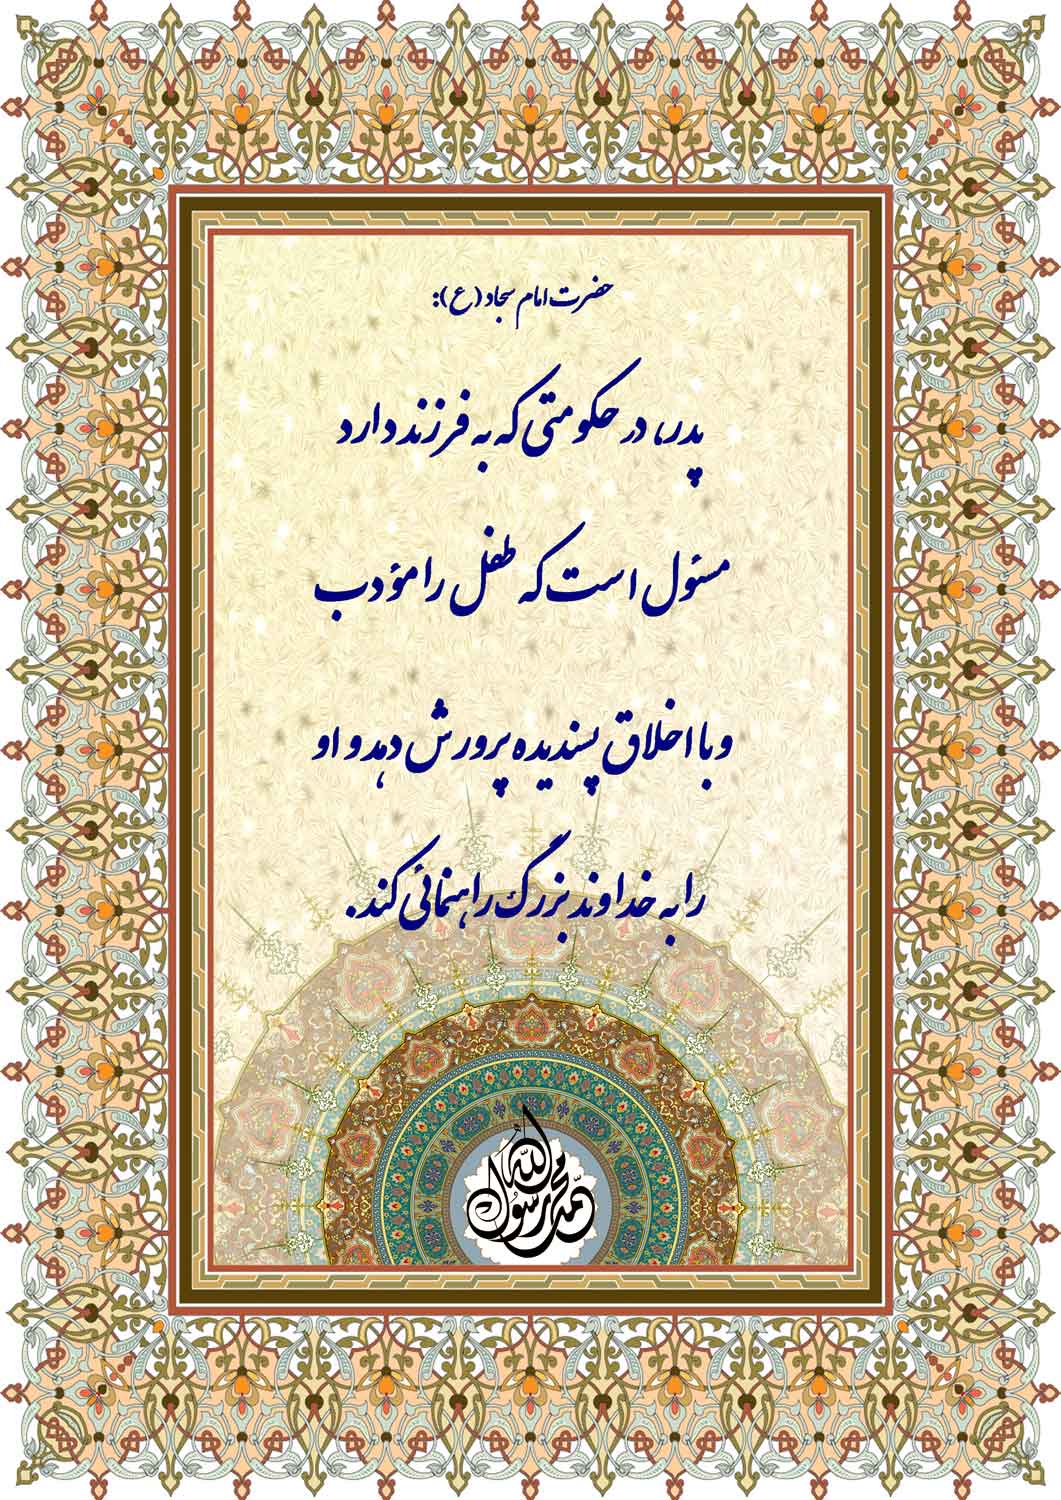 حضرت امام سجاد (ع):
پدر، در حکومتی که به فرزند دارد
مسئول است که طفل را مؤدب
و با اخلاق پسندیده پرورش دهد و او
را به خداوند بزرگ راهنمائی کند.
محمد رسول الله